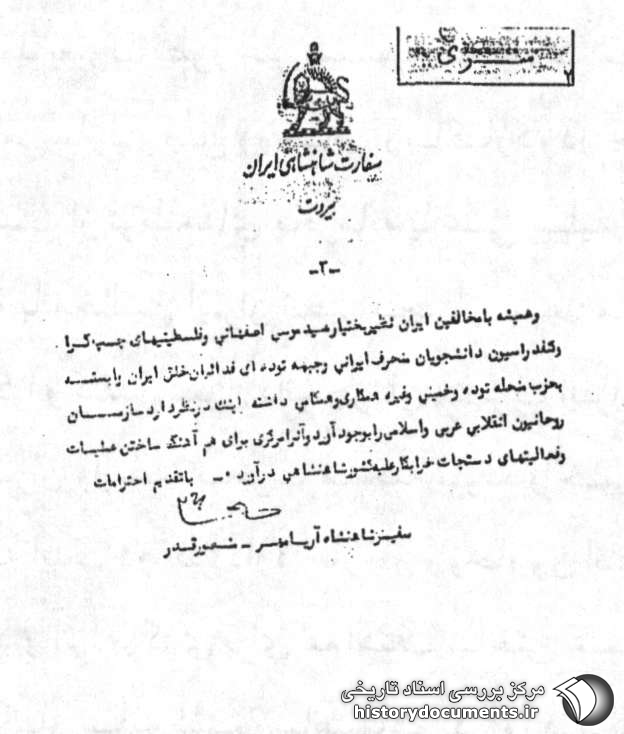 سری
۲
سفارت شاهنشاهی ایران
بیروت
-۳-
وهمیشه با مخالفین ایران نظیر بختیار و سید موسی اصفهانی و فلسطینیهای چپ گرا
و کنفدراسیون دانشجویان منحرف ایرانی و جبهه توده ای فدائیان خلق ایران وابسته
بحزب منحله توده و خمینی وغیره همکاری و همگامی داشته اینک در نظر دارد سازمان
روحانیون انقلابی عربی و اسلامی را بوجود آورد و آنرا مرکزی برای هم آهنگ ساختن عملیات
و فعالیتهای دستجات خرابکار علیه کشور شاهنشاهی درآورد ٠-- با تقدیم احترامات
سفیر شاهنشاه آریامهر - منصور قدر
مرکز بررسی اسناد تاریخی
historydocuments.ir